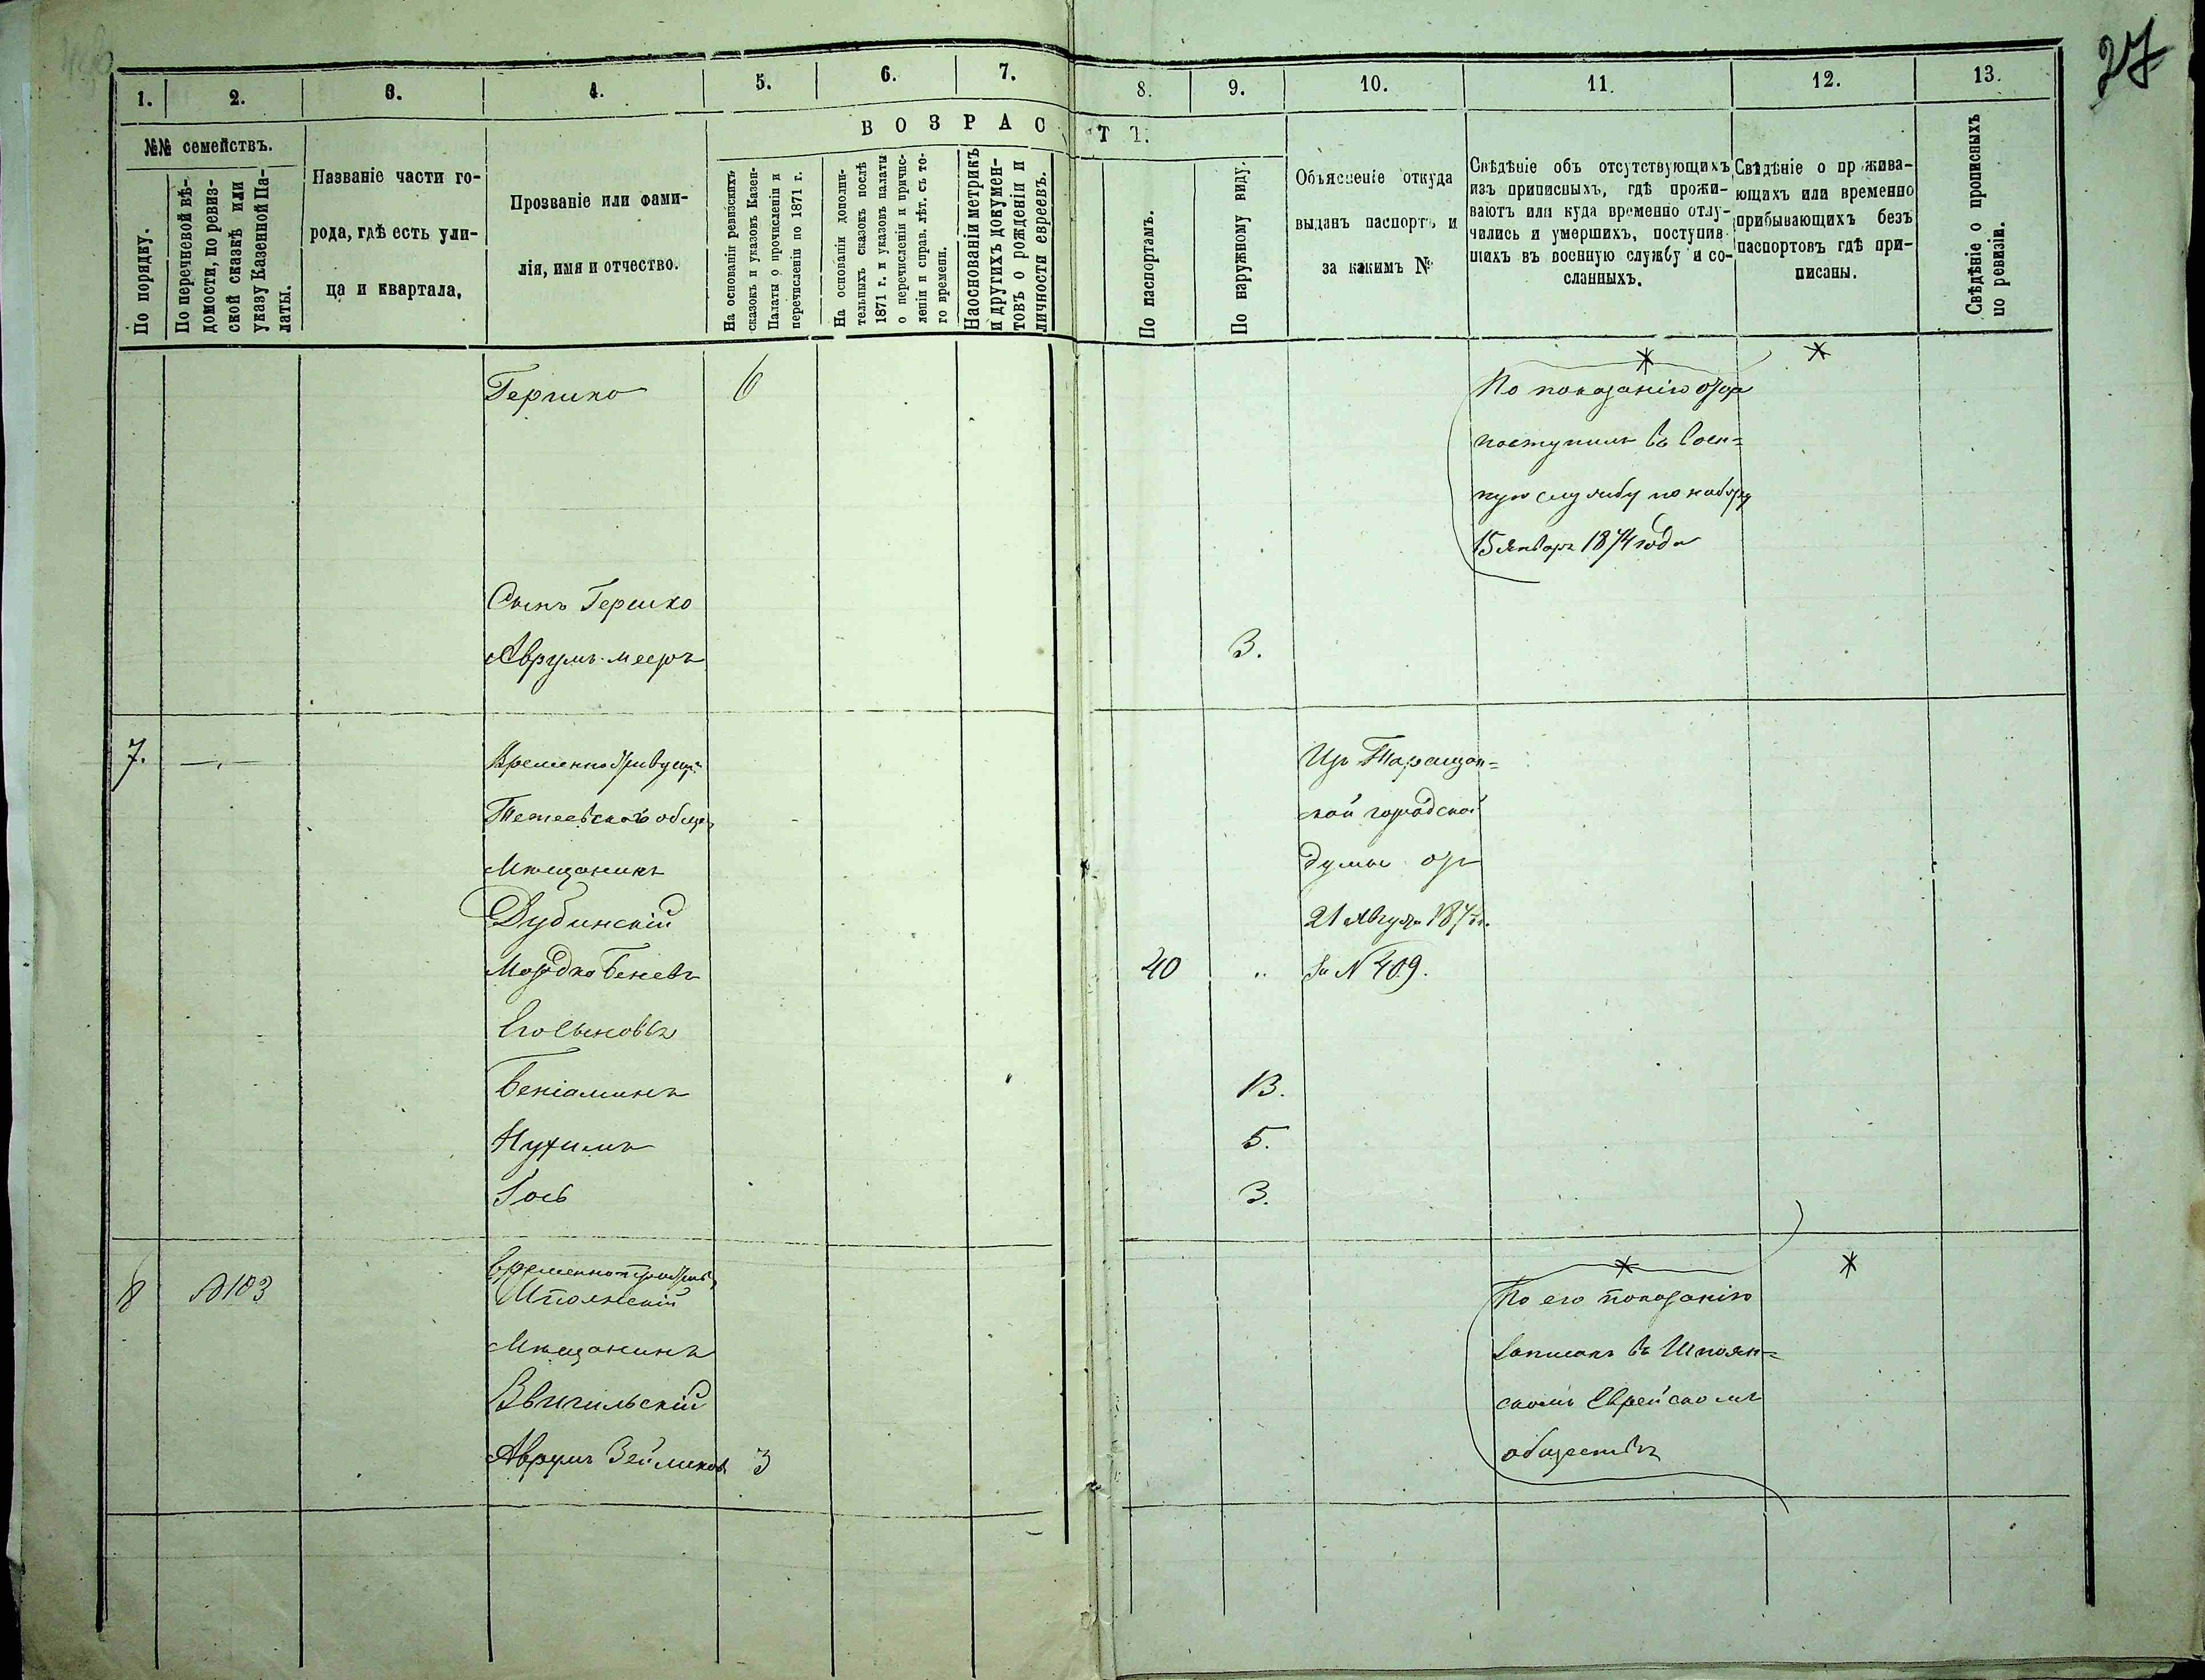 27
1. 2. 3. 4. 5. 6. 7. 8. 9. 10. 11. 12. 13.
№№ семействъ.
По порядку.
По перечневой вѣ-
домости, по ревиз-
ской сказкѣ или
указу Казенной Па-
латы.
Названіе части го-
рода, гдѣ есть ули-
ца и квартала.
Прозваніе или фами-
лія, имя и отчество.
В О З Р А С Т Ъ.
На основаніи ревизскихъ
сказокъ и указовъ Казен-
Палаты о прочисленіи и
перечисленіи по 1871 г.
На основаніи дополни-
тельныхъ сказокъ послѣ
1871 г. и указовъ палаты
о перечисленіи и причис-
леніи и справ. лѣт. съ то-
го времени.
На основаніи метрикъ
и другихъ докумен-
товъ о рожденіи и
личности евреевъ.
По паспортамъ.
По наружному виду.
Объясненіе откуда
выданъ паспортъ и
за какимъ №
Свѣдѣніе объ отсутствующихъ
изъ приписныхъ, гдѣ прожи-
ваютъ или куда временно отлу-
чились и умершихъ, поступив-
шихъ въ военную службу и со-
сланныхъ.
Свѣдѣніе о прожива-
ющихъ или временно
прибывающихъ безъ
паспортовъ гдѣ при-
писаны.
Свѣдѣніе о прописныхъ
по ревизіи.
Гершко 6
По показанію отца
поступилъ въ воен=
ную службу по набору
15 января 1874 года
Сынъ Гершко
Аврумъ-мееръ 3.
7. Временно
общ
Мѣщанинъ
Дубинскій
Мордко Беневъ 40 "
Изъ Таращан=
ской городской
думы отъ
21 Августа
За № 409.
Его сыновья
Беніаминъ 13.
Нухимъ 5.
Іось 3.
8 №103 Временно
Шполянскій
Мѣщанинъ
Звигильскій
Аврумъ Зейликовъ 3
По его показанію
записанъ въ Шполян=
скомъ Еврейскомъ
обществѣ